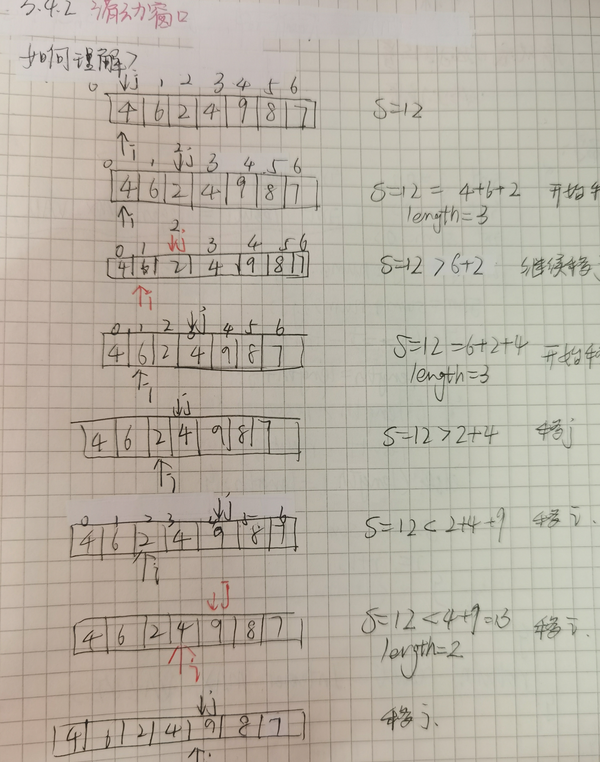 3.4.2 滑动窗口
如何理解?
0 j 1 2 3 4 5 6
4 6 2 4 9 8 7 S=12
i
0 1 2 j 3 4 5 6
4 6 2 4 9 8 7 S=12 = 4+6+2 开始移
i length=3
2
0 1 j 3 4 5 6
4 6 2 4 9 8 7 S=12 > 6+2 继续移j
i
0 1 2 3 j 4 5 6
4 6 2 4 9 8 7 S=12 = 6+2+4 开始移
i length=3
j
4 6 2 4 9 8 7 S=12 > 2+4 移j
i
j
0 1 2 3 4 5 6
4 6 2 4 9 8 7 S=12 < 2+4+9 移i.
i
j
4 6 2 4 9 8 7 S=12 < 4+9=13 移i.
i length=2
j
4 6 2 4 9 8 7 移j.
i